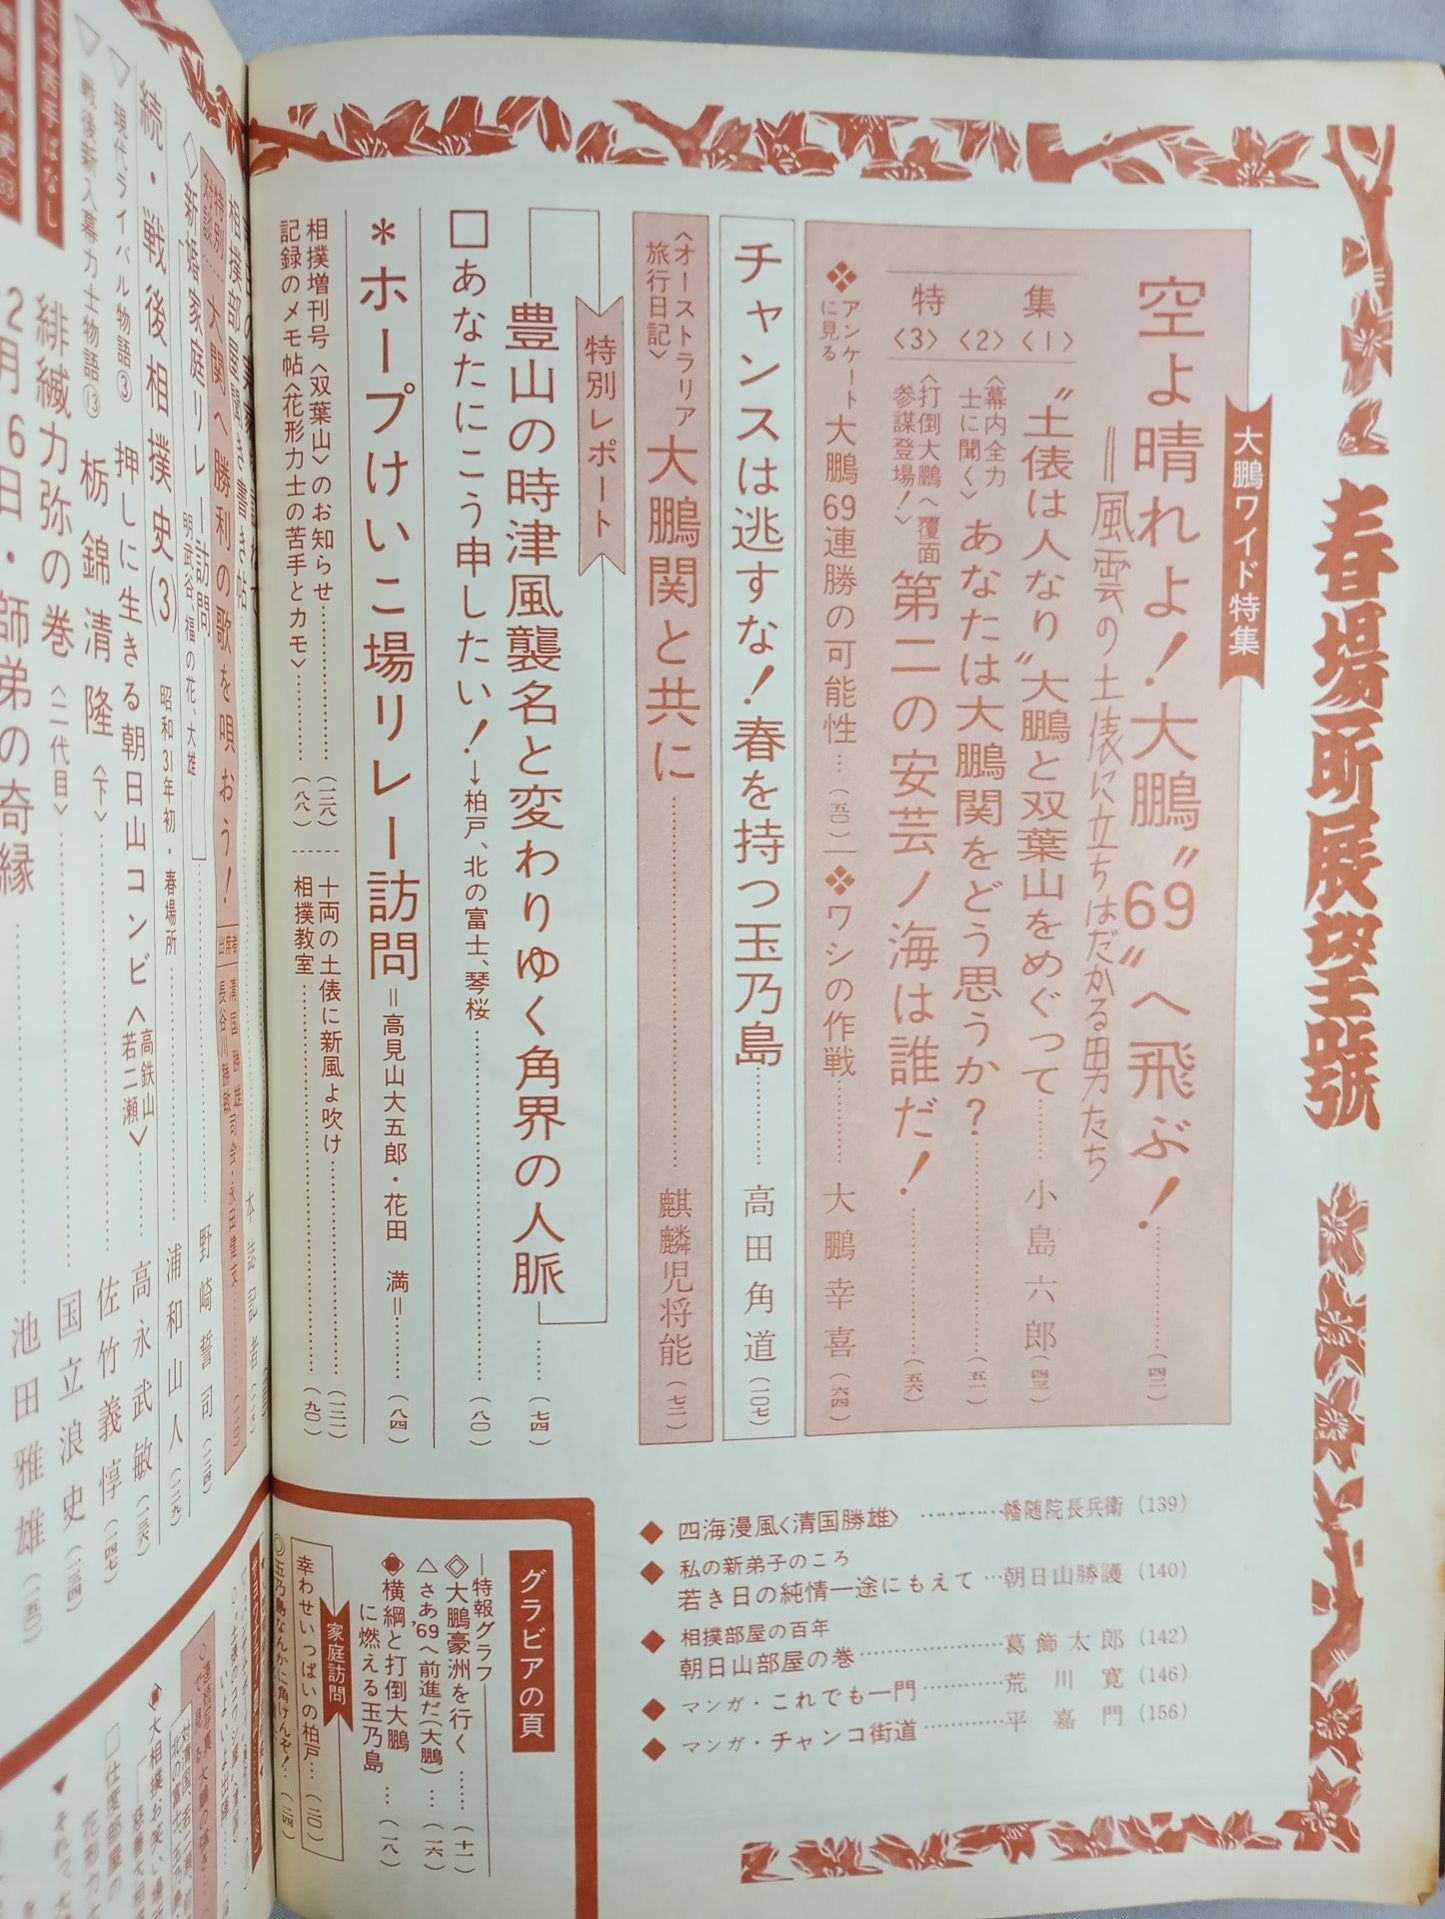 春場所展望號
大鵬ワイド特集
空よ晴れよ！大鵬〝69〟へ飛ぶ！……（四二）
＝風雲の土俵に立ちはだかる男たち
特集
〈1〉〝土俵は人なり〟大鵬と双葉山をめぐって……小島六郎（四三）
〈2〉〈幕内全力士に聞く〉あなたは大鵬関をどう思うか？……（五一）
〈3〉〈打倒大鵬へ覆面参謀登場！〉第二の安芸ノ海は誰だ！……（五六）
❖アンケートに見る 大鵬69連勝の可能性…（五〇）
❖ワシの作戦……大鵬幸喜（六四）
チャンスは逃すな！春を持つ玉乃島……高田角道（一〇七）
〈オーストラリア旅行日記〉大鵬関と共に……麒麟児将能（七二）
特別レポート
豊山の時津風襲名と変わりゆく角界の人脈……（七四）
□あなたにこう申したい！→柏戸、北の富士、琴桜……（八〇）
＊ホープけいこ場リレー訪問＝高見山大五郎・花田　満＝……（八四）
相撲増刊号〈双葉山〉のお知らせ……（一三八）
記録のメモ帖〈花形力士の苦手とカモ〉……（八八）
十両の土俵に新風よ吹け……（一三一）
相撲教室……（九〇）
相撲部屋聞き書き帖……本誌記者
特別対談 大関へ勝利の歌を唄おう！
出席者 清国勝雄 長谷川勝敏 司会・永田健支
◇新婚家庭リレー訪問 明武谷、福の花、大雄……野崎誓司（一二四）
続・戦後相撲史(3) 昭和31年初・春場所……浦和山人（一二九）
▽現代ライバル物語③ 押しに生きる朝日山コンビ〈高鉄山 若二瀬〉……高永武敏（一三六）
▽戦後新入幕力士物語⑬ 栃錦清隆〈下〉……佐竹義惇（一四七）
緋縅力弥の巻〈二代目〉……国立浪史（一三四）
2月6日・師弟の奇縁……池田雅雄（一五〇）
◆四海漫風〈清国勝雄〉……幡随院長兵衛（139）
◆私の新弟子のころ
若き日の純情一途にもえて…朝日山勝護（140）
◆相撲部屋の百年
朝日山部屋の巻……葛飾太郎（142）
◆マンガ・これでも一門……荒川寛（146）
◆マンガ・チャンコ街道……平嘉門（156）
グラビアの頁
特報グラフ
◎大鵬豪洲を行く……（十一）
△さあ'69へ前進だ（大鵬）…（一六）
横綱と打倒大鵬に燃える玉乃島…（一八）
家庭訪問
幸わせいっぱいの柏戸…（二〇）
玉乃島なんかに負けんぞ！…（二四）